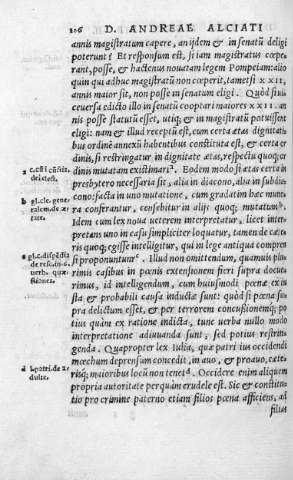 206 D. ANDREAE ALCIATI
annis magistratum capere, an ijdem & in senatũ deligi
poterunt? Et responsum est, si iam magistratus cœpe-
rant, posse, & hactenus nouatam legem Pompeiam: alio
quin qui adhuc magistratũ non cœperit, tametsi XXII,
annis maior sit, non posse in senatum eligi. Quòd si ui-
ceuersa edicto illo in senatũ cooptari maiores XXII. an-
nis posse statutũ esset, utiq; & in magistratũ potuissent
eligi: nam & illud receptũ est, cum certa ætas dignitati-
bus ordine annexũ habentibus constituta est, & certa or
dinis, si restringatur in dignitate ætas, respectu quoq; or
dinis mutatam existimariᵃ. Eodem modo si ætas certa in
presbytero necessaria sit, alia in diacono, alia in subdia
cono: facta in uno mutatione, cum gradatim hæc mune
ra conferantur, censebitur in alijs quoq; mutatumᵇ.
Idem cum lex noua ueterem interpretatur, licet inter
pretans uno in casu simpliciter loquatur, tamen de cæte-
ris quoq; egisse intelligitur, qui in lege antiqua compren
si proponunturᶜ. Illud non omittendum, quamuis plu-
rimis casibus in pœnis extensionem fieri supra docue-
rimus, id intelligendum, cum huiusmodi pœnæ ex iu
sta & probabili causa inductæ sunt: quòd si pœna su-
pra delictum esset, & per terrorem concussionemq; po
tius quàm ex ratione indicta, tunc uerba nullo modo
interpretatione adiuuanda sunt, sed potius restrin-
genda. Quapropter lex Iulia, quæ patri ius occidendi
mœchum deprensum concedit, in auo, & proauo, cæte-
risq; maioribus locũ non tenetᵈ. Occidere enim aliquem
propria autoritate perquàm crudele est. Sic & constitu-
tio pro crimine paterno etiam filios pœna afficiens, ad
filios
a c.
b gl. cle. gene
ralem. de æ
tate.
c gl. c.
d l. patri. de a-
dulte.